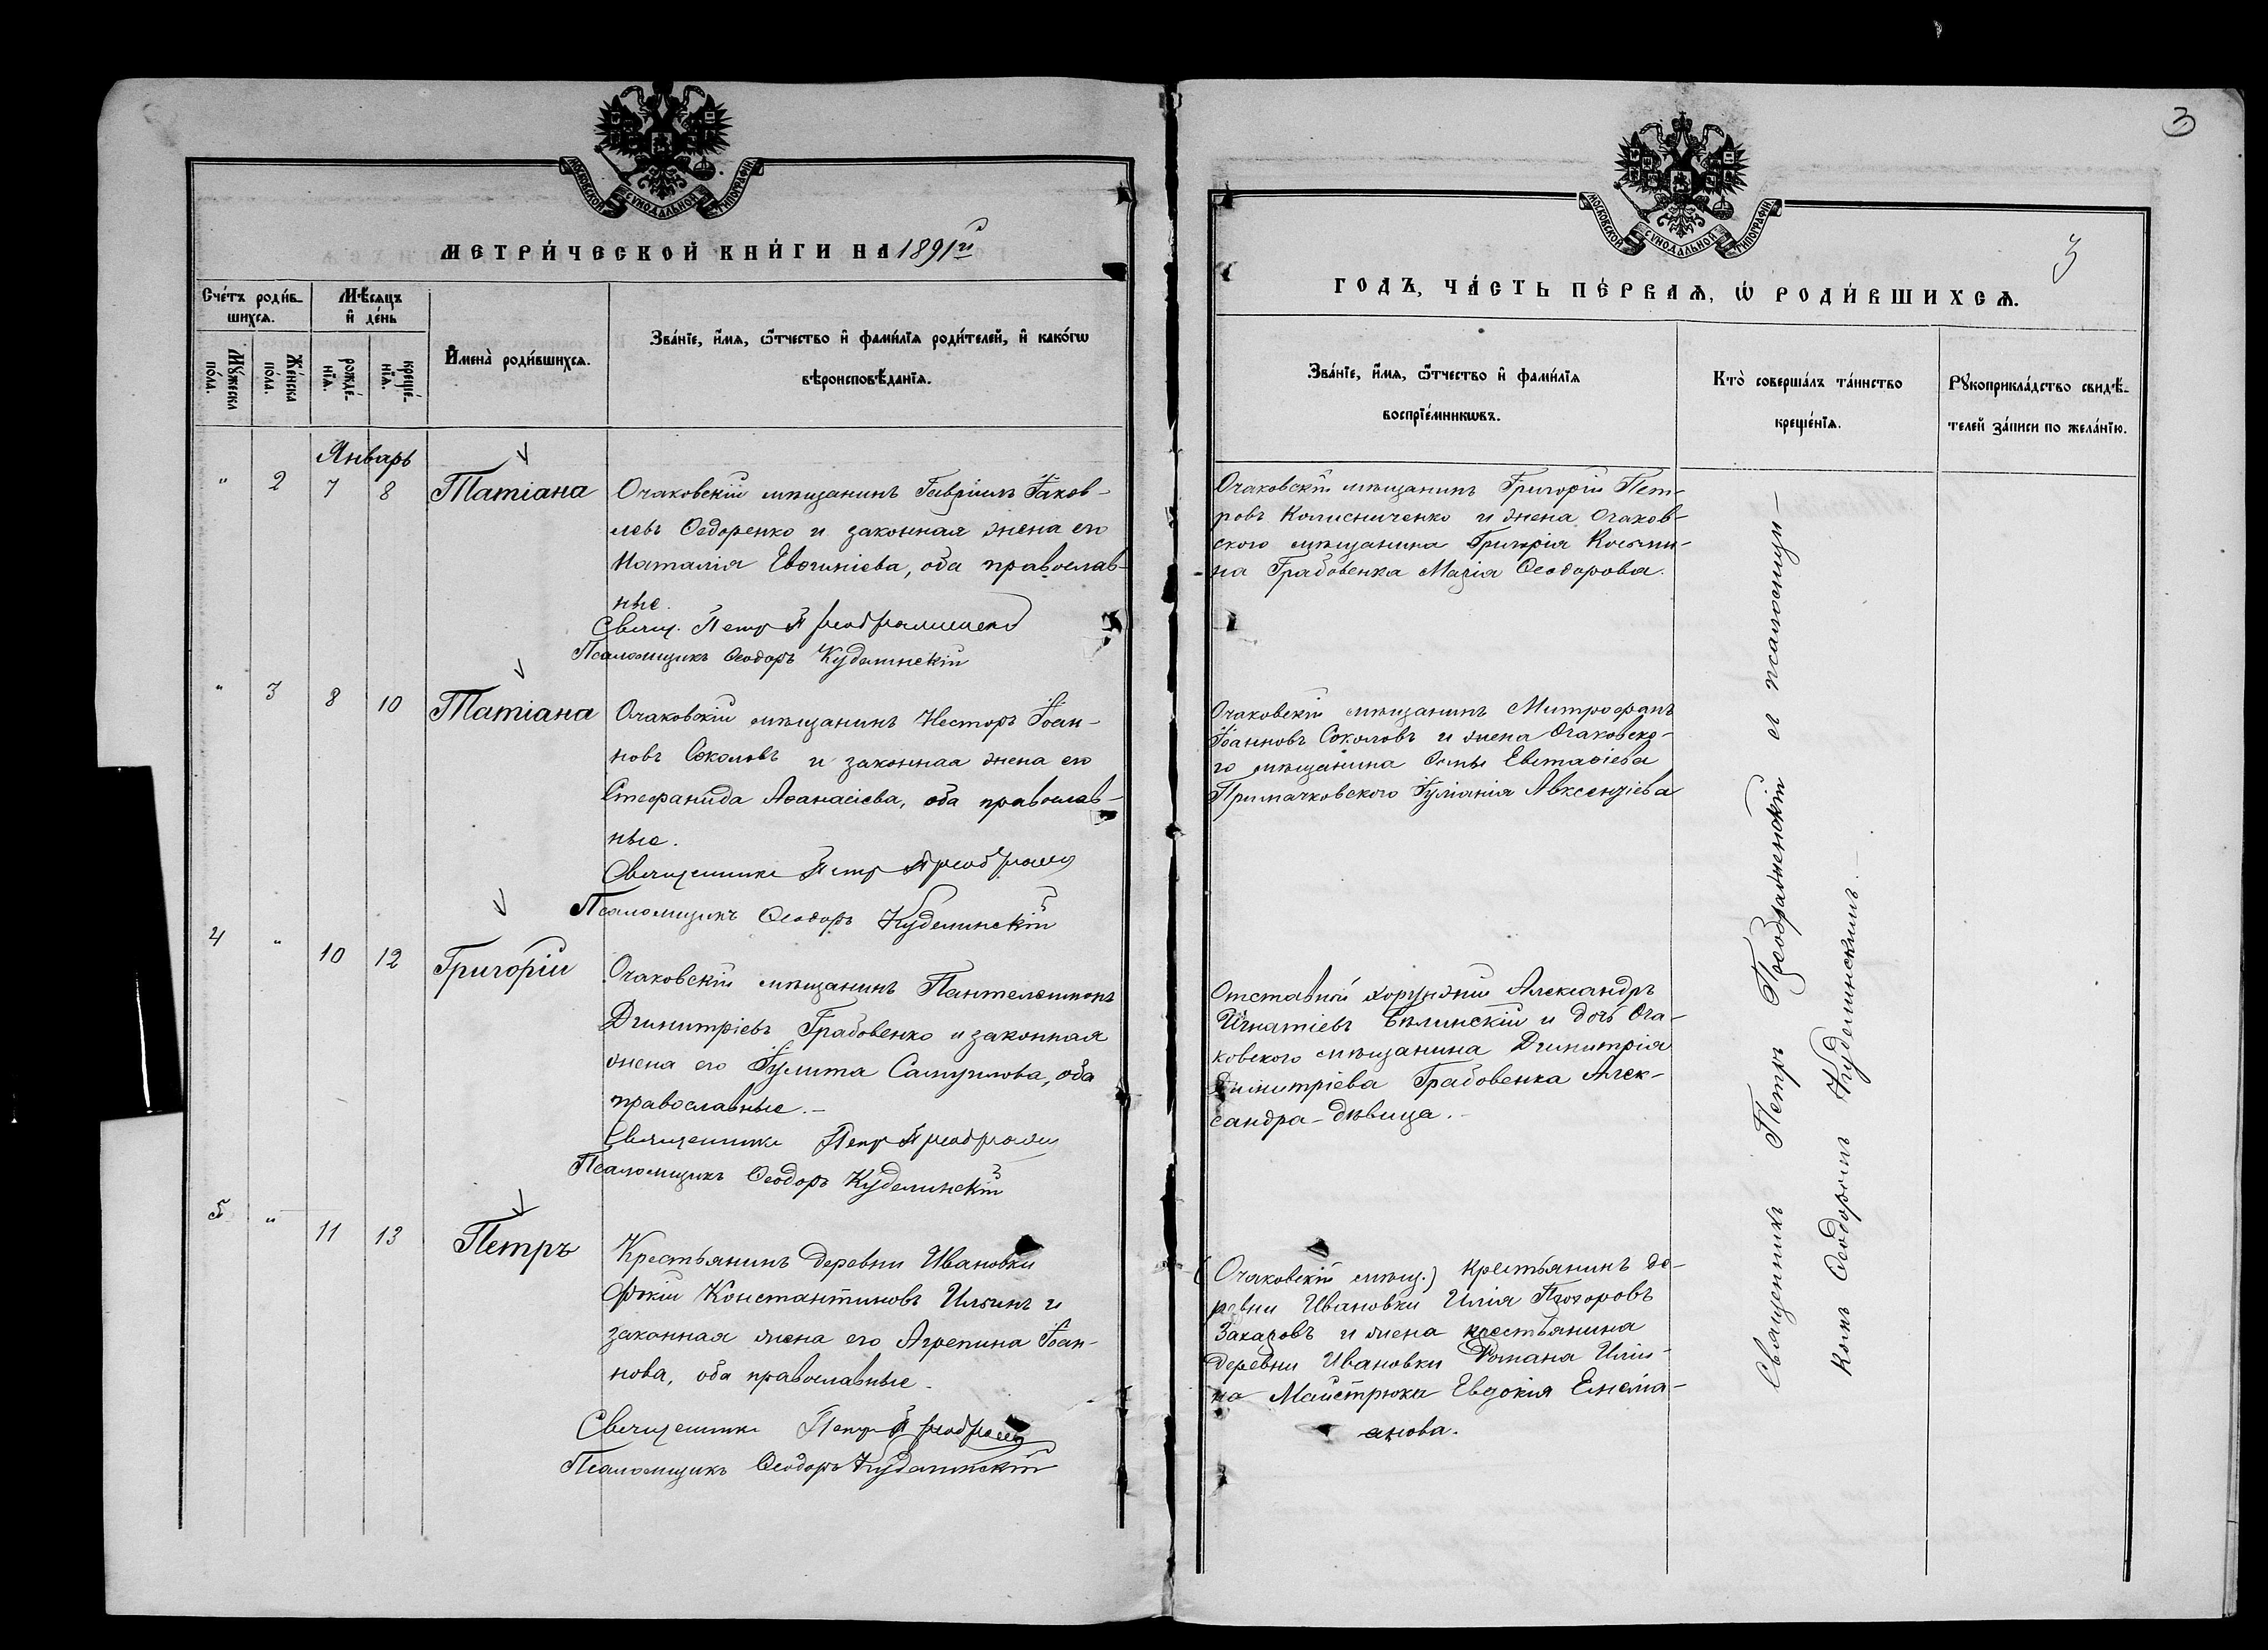 МОСКОВСКОЙ СѴНОДАЛЬНОЙ ТИПОГРАФІИ
МЕТРИ́ЧЕСКОЙ КНИ́ГИ НА 1891й
Сче́тъ роди́в-
шихсѧ.
Мѣ́сяцъ
и҆ де́нь
Мꙋ́жеска
по́ла.
Же́нска
по́ла.
рожде́-
нїѧ.
креще́-
нїѧ.
И҆мена̀ роди́вшихсѧ.
Зва́нїе, и҆́мѧ, ѻ҆́тчество и҆ фами́лїѧ роди́телей, и҆ како́гѡ
вѣроисповѣ́данїѧ.
Январь
" 2 7 8 Татіана
Очаковскій мѣщанинъ Гавріилъ Іаков-
левъ Ѳедоренко и законная жена его
Наталія Евѳиміева, оба православ-
ные.
Свящ. Петр Преображенск
Псаломщикъ Ѳеодоръ Куделинскій
" 3 8 10 Татіана
Очаковскій мѣщанинъ Несторъ Іоан-
новъ Соколовъ и законная жена его
Стефанида Аѳанасіева, оба православ-
ные.
Священникъ Петр Преображ
Псаломщикъ Ѳеодоръ Куделинскій
4 " 10 12 Григорій
Очаковскій мѣщанинъ Пантелеимонъ
Димитріевъ Грабовенко и законная
жена его Іулита Самуилова, оба
православные.-
Священникъ Петр Преображ
Псаломщикъ Ѳеодоръ Куделинскій
5 " 11 13 Петръ
Крестьянинъ деревни Ивановки
Фокій Константиновъ Ильинъ и
законная жена его Агрепина Іоан-
нова, оба православные.
Священникъ Петр Преображ
Псаломщикъ Ѳеодоръ Куделинскій
3
МОСКОВСКОЙ СѴНОДАЛЬНОЙ ТИПОГРАФІИ
3
ГОДЪ, ЧА́СТЬ ПЕ́РВАѦ, Ѡ҆ РОДИ́ВШИХСѦ.
Зва́нїе, и҆́мѧ, ѻ҆́тчество и҆ фами́лїѧ
воспрїе́мникѡвъ.
Кто̀ соверша́лъ та́инство
креще́нїѧ.
Рꙋкоприкла́дство свидѣ́-
телей за́писи по жела́нїю.
Очаковскій мѣщанинъ Григорій Пет-
ровъ Колисниченко и жена Очаков-
ского мѣщанина Григорія Косьми-
на Грабовенка Марія Ѳеодорова.
Очаковскій мѣщанинъ Митрофанъ
Іоанновъ Соколовъ и жена Очаковско-
го мѣщанина Ѳомы Евстафіева
Примачковского Іуліанія Авксентіева
Отставной хорунжій Александръ
Игнатіевъ Бѣлинскій и дочь Оча-
ковского мѣщанина Димитрія
Димитріева Грабовенка Алек-
сандра - дѣвица.-
(Очаковскій мѣщ.) крестьянинъ де-
ревни Ивановки Илія Прохоровъ
Захаровъ и жена крестьянина
деревни Ивановки Романа Иліи-
на Майстрюка Евдокія Емелиа-
анова.
Священникъ Петръ Преображенскій съ псаломщи-
комъ Ѳеодоромъ Куделинскимъ.-